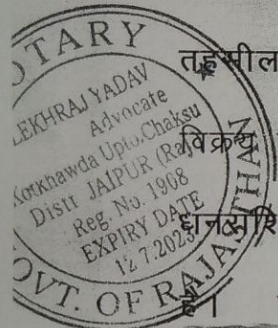 NOTARY
LEKHRAJ YADAV
Advocate
Kotkhawda Upto Chaksu
Distt JAIPUR (Raj
Reg. No. 1908
EXPIRY DATE
12.7.2023
GOVT. OF RAJASTHAN
तहसील
विक्रय
है।